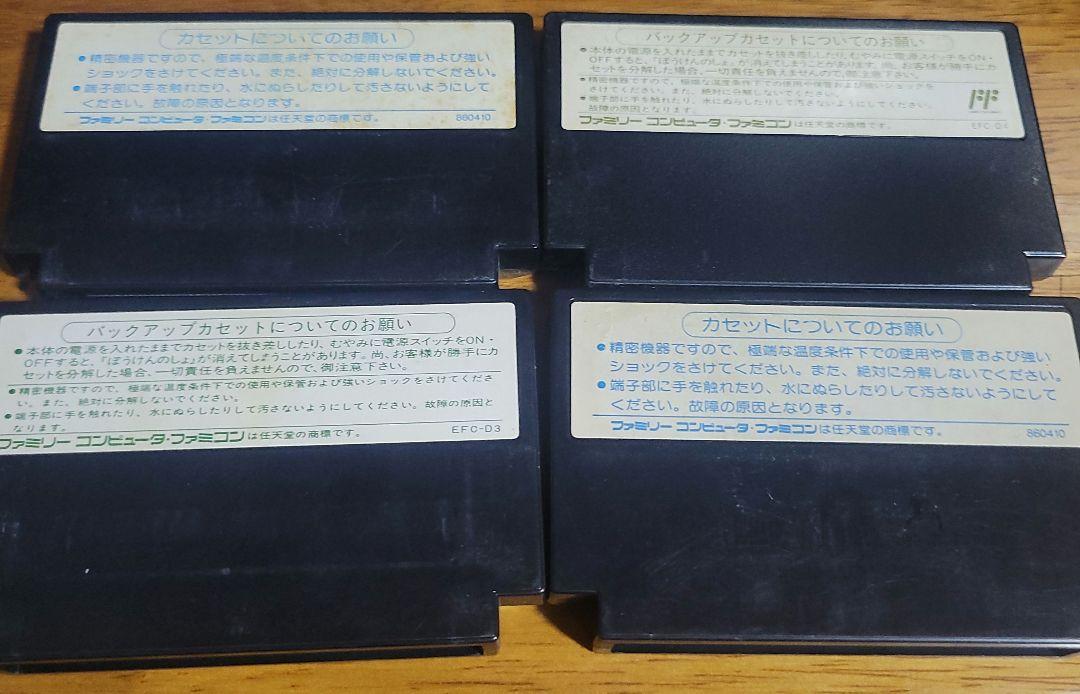 カセットについてのお願い
●精密機器ですので、極端な温度条件下での使用や保管および強い
ショックをさけてください。また、絶対に分解しないでください。
●端子部に手を触れたり、水にぬらしたりして汚さないようにして
ください。故障の原因となります。
ファミリー コンピュータ・ファミコンは任天堂の商標です。 860410
バックアップカセットについてのお願い
●本体の電源を入れたままでカセットを抜き差ししたり、むやみに電源スイッチをON・
OFFすると、「ぼうけんのしょ」が消えてしまうことがあります。尚、お客様が勝手にカ
セットを分解した場合、一切責任を負えませんので、御注意下さい。
●精密機器ですので、極端な温度条件下での使用や保管および強いショックを
さけてください。また、絶対に分解しないでください。
●端子部に手を触れたり、水にぬらしたりして汚さないようにしてください。
故障の原因となります。
ファミリー コンピュータ・ファミコンは任天堂の商標です。 EFC-D4
FF
バックアップカセットについてのお願い
●本体の電源を入れたままでカセットを抜き差ししたり、むやみに電源スイッチをON・
OFFすると、「ぼうけんのしょ」が消えてしまうことがあります。尚、お客様が勝手にカ
セットを分解した場合、一切責任を負えませんので、御注意下さい。
●精密機器ですので、極端な温度条件下での使用や保管および強いショックをさけてくださ
い。また、絶対に分解しないでください。
●端子部に手を触れたり、水にぬらしたりして汚さないようにしてください。故障の原因と
なります。
ファミリー コンピュータ・ファミコンは任天堂の商標です。 EFC-D3
カセットについてのお願い
●精密機器ですので、極端な温度条件下での使用や保管および強い
ショックをさけてください。また、絶対に分解しないでください。
●端子部に手を触れたり、水にぬらしたりして汚さないようにして
ください。故障の原因となります。
ファミリー コンピュータ・ファミコンは任天堂の商標です。 860410